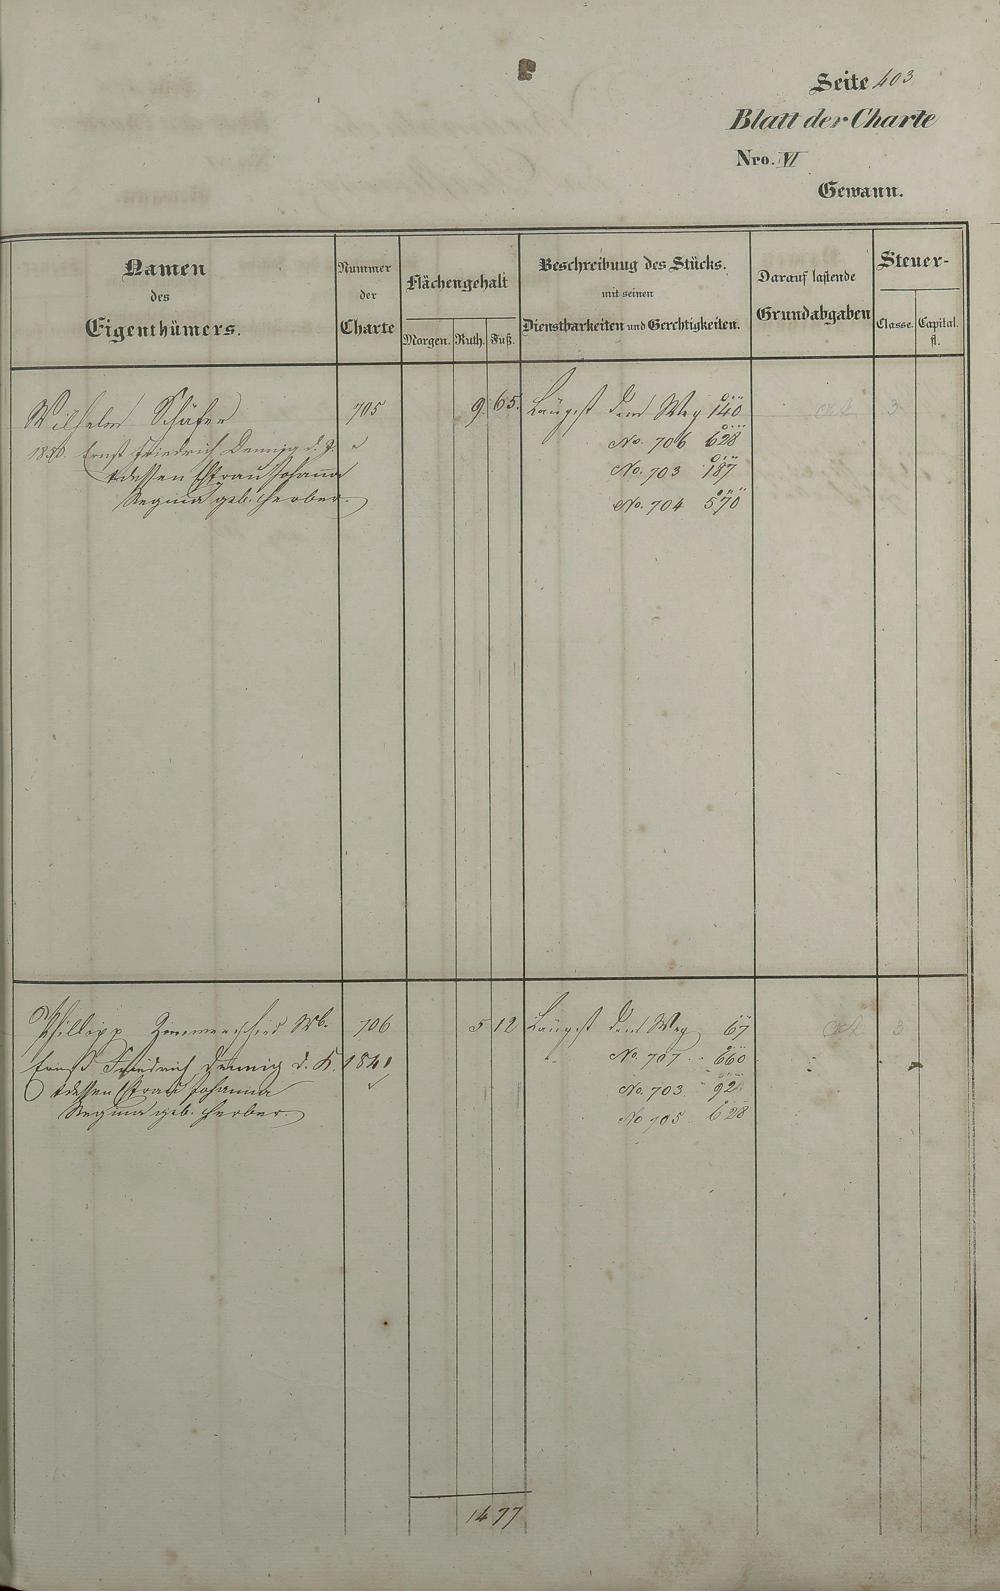 Seite 403
Blatt der Charte
Nro. VI
Gewann.
Namen des Eigenthümers.
Nummer der Charte
Flächengehalt
Morgen. Ruth. Fuß.
Beschreibung des Stücks.
mit seinen
Dienstbarkeiten und Gerechtigkeiten.
Darauf lastende
Grundabgaben
Steuer-
Classe. Capital.
fl.
Wilhelm Schäfer 705 9 65. Längst dem Weg 140 3
Ernst Friedrich Dennig d. J. No. 706 628
et dessen Ehefrau Johanna No. 703 187
Regina geb. Herber. No. 704 570
Phillipp Zimmerschied Wb. 706 5 12 Längst dem Weg 67 3
Ernst Friedrich Dennig d. K. 1841 No. 707 660
et dessen Ehefrau Johanna No. 703 92
Regina geb. Herber. No 705 628
14 77